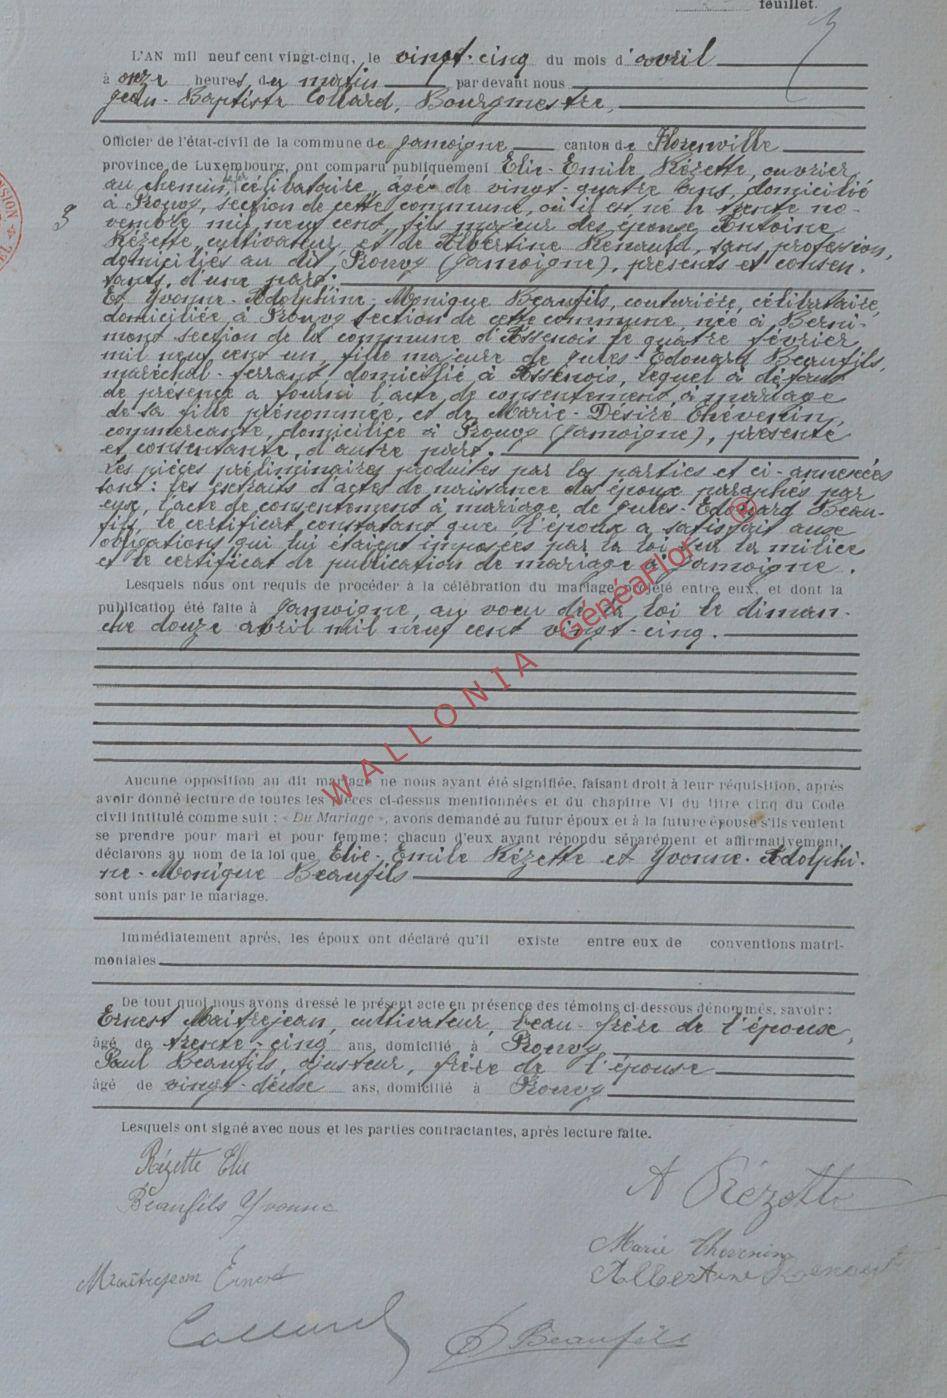 feuillet.
L'AN mil neuf cent vingt-cinq, le vingt-cinq du mois d'avril
à onze heures du matin par devant nous
Jean-Baptiste Collard, Bourgmestre,
Officier de l'état-civil de la commune de Jamoigne canton de Florenville
province de Luxembourg, ont comparu publiquement Elie-Emile Rézette, ouvrier
au chemin célibataire, âgé de vingt-quatre ans, domicilié
à Prouvy, section de cette commune, où il est né le trente no-
vembre mil neuf cent, fils majeur des époux Antoine
Rézette, cultivateur et de Albertine Renauld, sans profession,
domiciliés au dit Prouvy (Jamoigne), présents et consen-
tants, d'une part;
Et Yvonne-Adolphine-Monique Beaufils, couturière, célibataire,
domiciliée à Prouvy section de cette commune, née à Berni-
mont section de la commune d'Assenois le quatre février
mil neuf cent un, fille majeure de Jules-Edouard Beaufils,
maréchal-ferrant, domicilié à Assenois, lequel à défaut
de présence a fourni l'acte de consentement à mariage
de sa fille prénommée, et de Marie-Désiré Thévenin,
commerçante, domiciliée à Prouvy (Jamoigne), présente
et consentante, d'autre part.
Les pièces préliminaires produites par les parties et ci-annexées
sont: les extraits d'actes de naissance des époux paraphés par
eux, l'acte de consentement à mariage de Jules-Edouard Beau-
fils, le certificat constatant que l'époux a satisfait aux
obligations qui lui étaient imposées par la loi sur la milice
et le certificat de publication de mariage à Jamoigne.
Lesquels nous ont requis de procéder à la célébration du mariage projeté entre eux, et dont la
publication été faite à Jamoigne, au vœu de la loi le diman-
che douze avril mil neuf cent vingt-cinq.
WALLONIA GenéaFlor ®
Aucune opposition au dit mariage ne nous ayant été signifiée, faisant droit à leur réquisition, après
avoir donné lecture de toutes les pièces ci-dessus mentionnées et du chapitre VI du titre cinq du Code
civil intitulé comme suit : « Du Mariage », avons demandé au futur époux et à la future épouse s'ils veulent
se prendre pour mari et pour femme; chacun d'eux ayant répondu séparément et affirmativement,
déclarons au nom de la loi que Elie-Emile Rézette et Yvonne-Adolphi-
ne-Monique Beaufils
sont unis par le mariage.
Immédiatement après, les époux ont déclaré qu'il existe entre eux de conventions matri-
moniales
De tout quoi nous avons dressé le présent acte en présence des témoins ci-dessous dénommés, savoir :
Ernest Maitrejean, cultivateur, beau-frère de l'épouse,
âgé de trente-cinq ans, domicilié à Prouvy
Paul Beaufils, ajusteur, frère de l'épouse
âgé de vingt-deux ans, domicilié à Prouvy
Lesquels ont signé avec nous et les parties contractantes, après lecture faite.
Rézette Elie
A Rézette
Beaufils Yvonne
Marie Thévenin
Maîtrejean Ernest
Albertine Renauld
Collard
P Beaufils